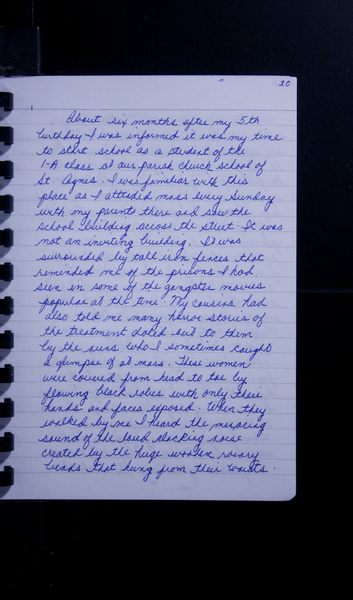 30
About six months after my 5th
birthday I was informed it was my time
to start school as a student of the
1-A class at our parish church school of
St. Agnes. I was familiar with this
place as I attended mass every Sunday
with my parents there and saw the
school building across the street. It was
not an inviting building. It was
surrounded by tall iron fences that
reminded me of the prisons I had
seen in some of the gangster movies
popular at the time. My cousins had
also told me many horror stories of
the treatment doled out to them
by the nuns who I sometimes caught
a glimpse of at mass. These women
were covered from head to toe by
flowing black robes with only their
hands and faces exposed. When they
walked by me I heard the menacing
sound of the loud clacking noise
created by the huge wooden rosary
beads that hung from their waists.